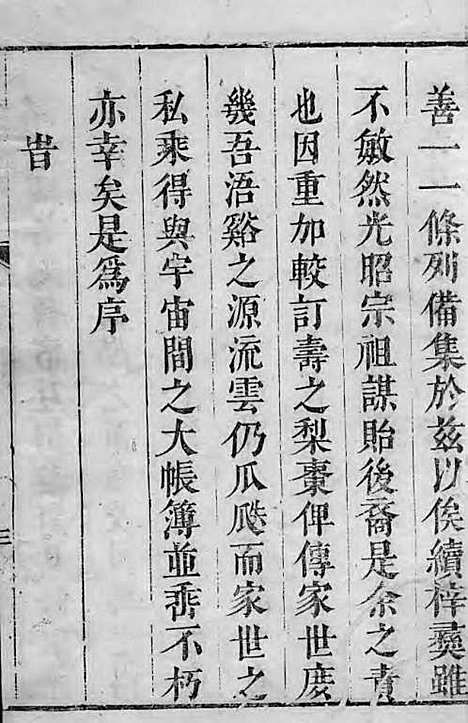 善一一條列備集於茲以俟續梓彛雖
不敏然光昭宗祖謀貽後裔是余之責
也因重加較訂壽之梨棗俾傳家世庶
幾吾浯谿之源流雲仍瓜瓞而家世之
私乘得與宇宙間之大帳簿並埀不朽
亦幸矣是爲序
旹
三